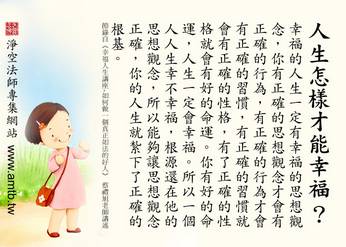 人生怎樣才能幸福？
幸福的人生一定有幸福的思想觀
念，你有正確的思想觀念才會有
正確的行為，有正確的行為才會
有正確的習慣，有正確的習慣就
會有正確的性格，有了正確的性
格就會有好的命運。你有好的命
運，人生一定會幸福。所以一個
人人生幸不幸福，根源還在他的
思想觀念，所以能夠讓思想觀念
正確，你的人生就紮下了正確的
根基。
節錄自《幸福人生講座-如何做一個真正如法的好人》 蔡禮旭老師講述
淨空法師專集網站 www.amtb.tw